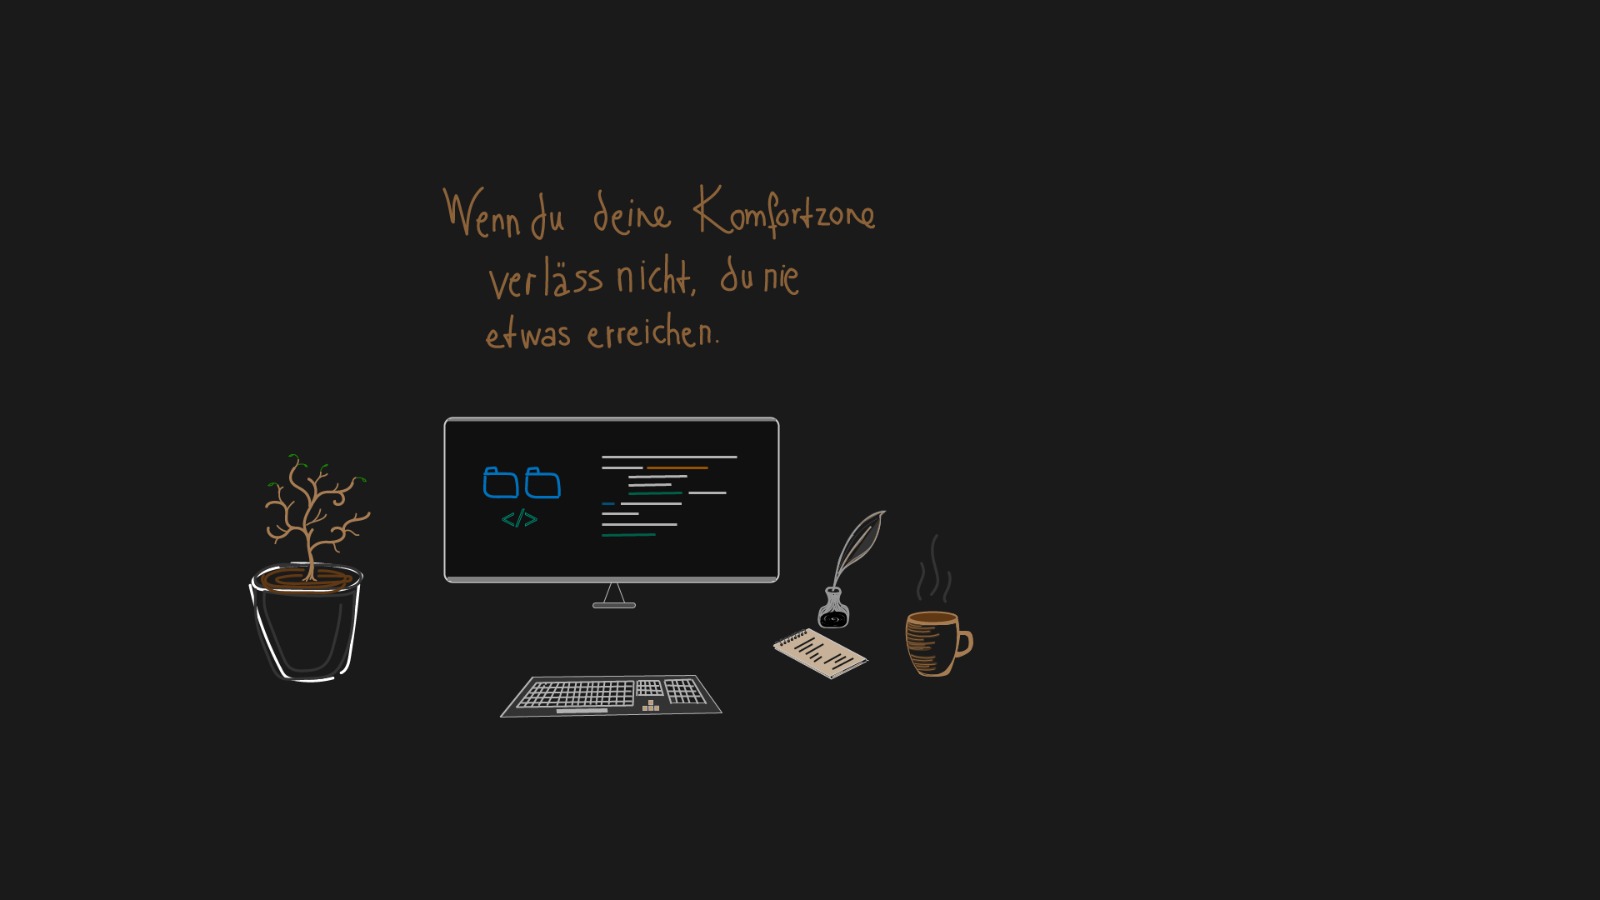 Wenn du deine Komfortzone
verläss nicht, du nie
etwas erreichen.
</>